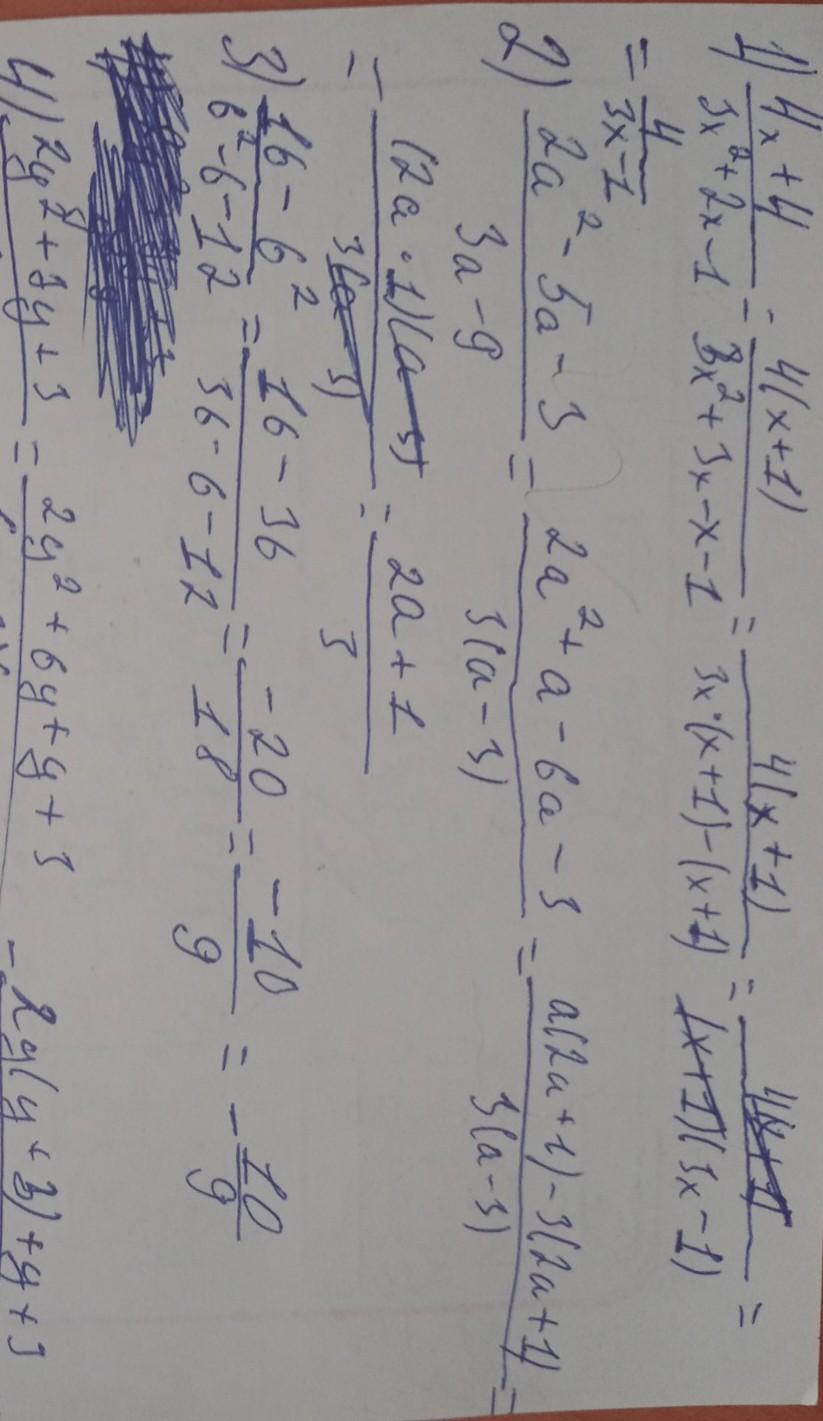 1) (4x+4)/(3x²+2x-1) = 4(x+1)/(3x²+3x-x-1) = 4(x+1)/(3x·(x+1)-(x+1)) = 4(x+1)/((x+1)(3x-1)) =
= 4/(3x-1)
2) (2a²-5a-3)/(3a-9) = (2a²+a-6a-3)/(3(a-3)) = (a(2a+1)-3(2a+1))/(3(a-3)) =
= (2a·1)(a-3)/(3(a-3)) = (2a+1)/3
3) (16-6²)/(6²-6-12) = (16-36)/(36-6-12) = -20/18 = -10/9 = -10/9
4) 2y²+7y+3 = 2y²+6y+y+3 = 2y(y+3)+y+3